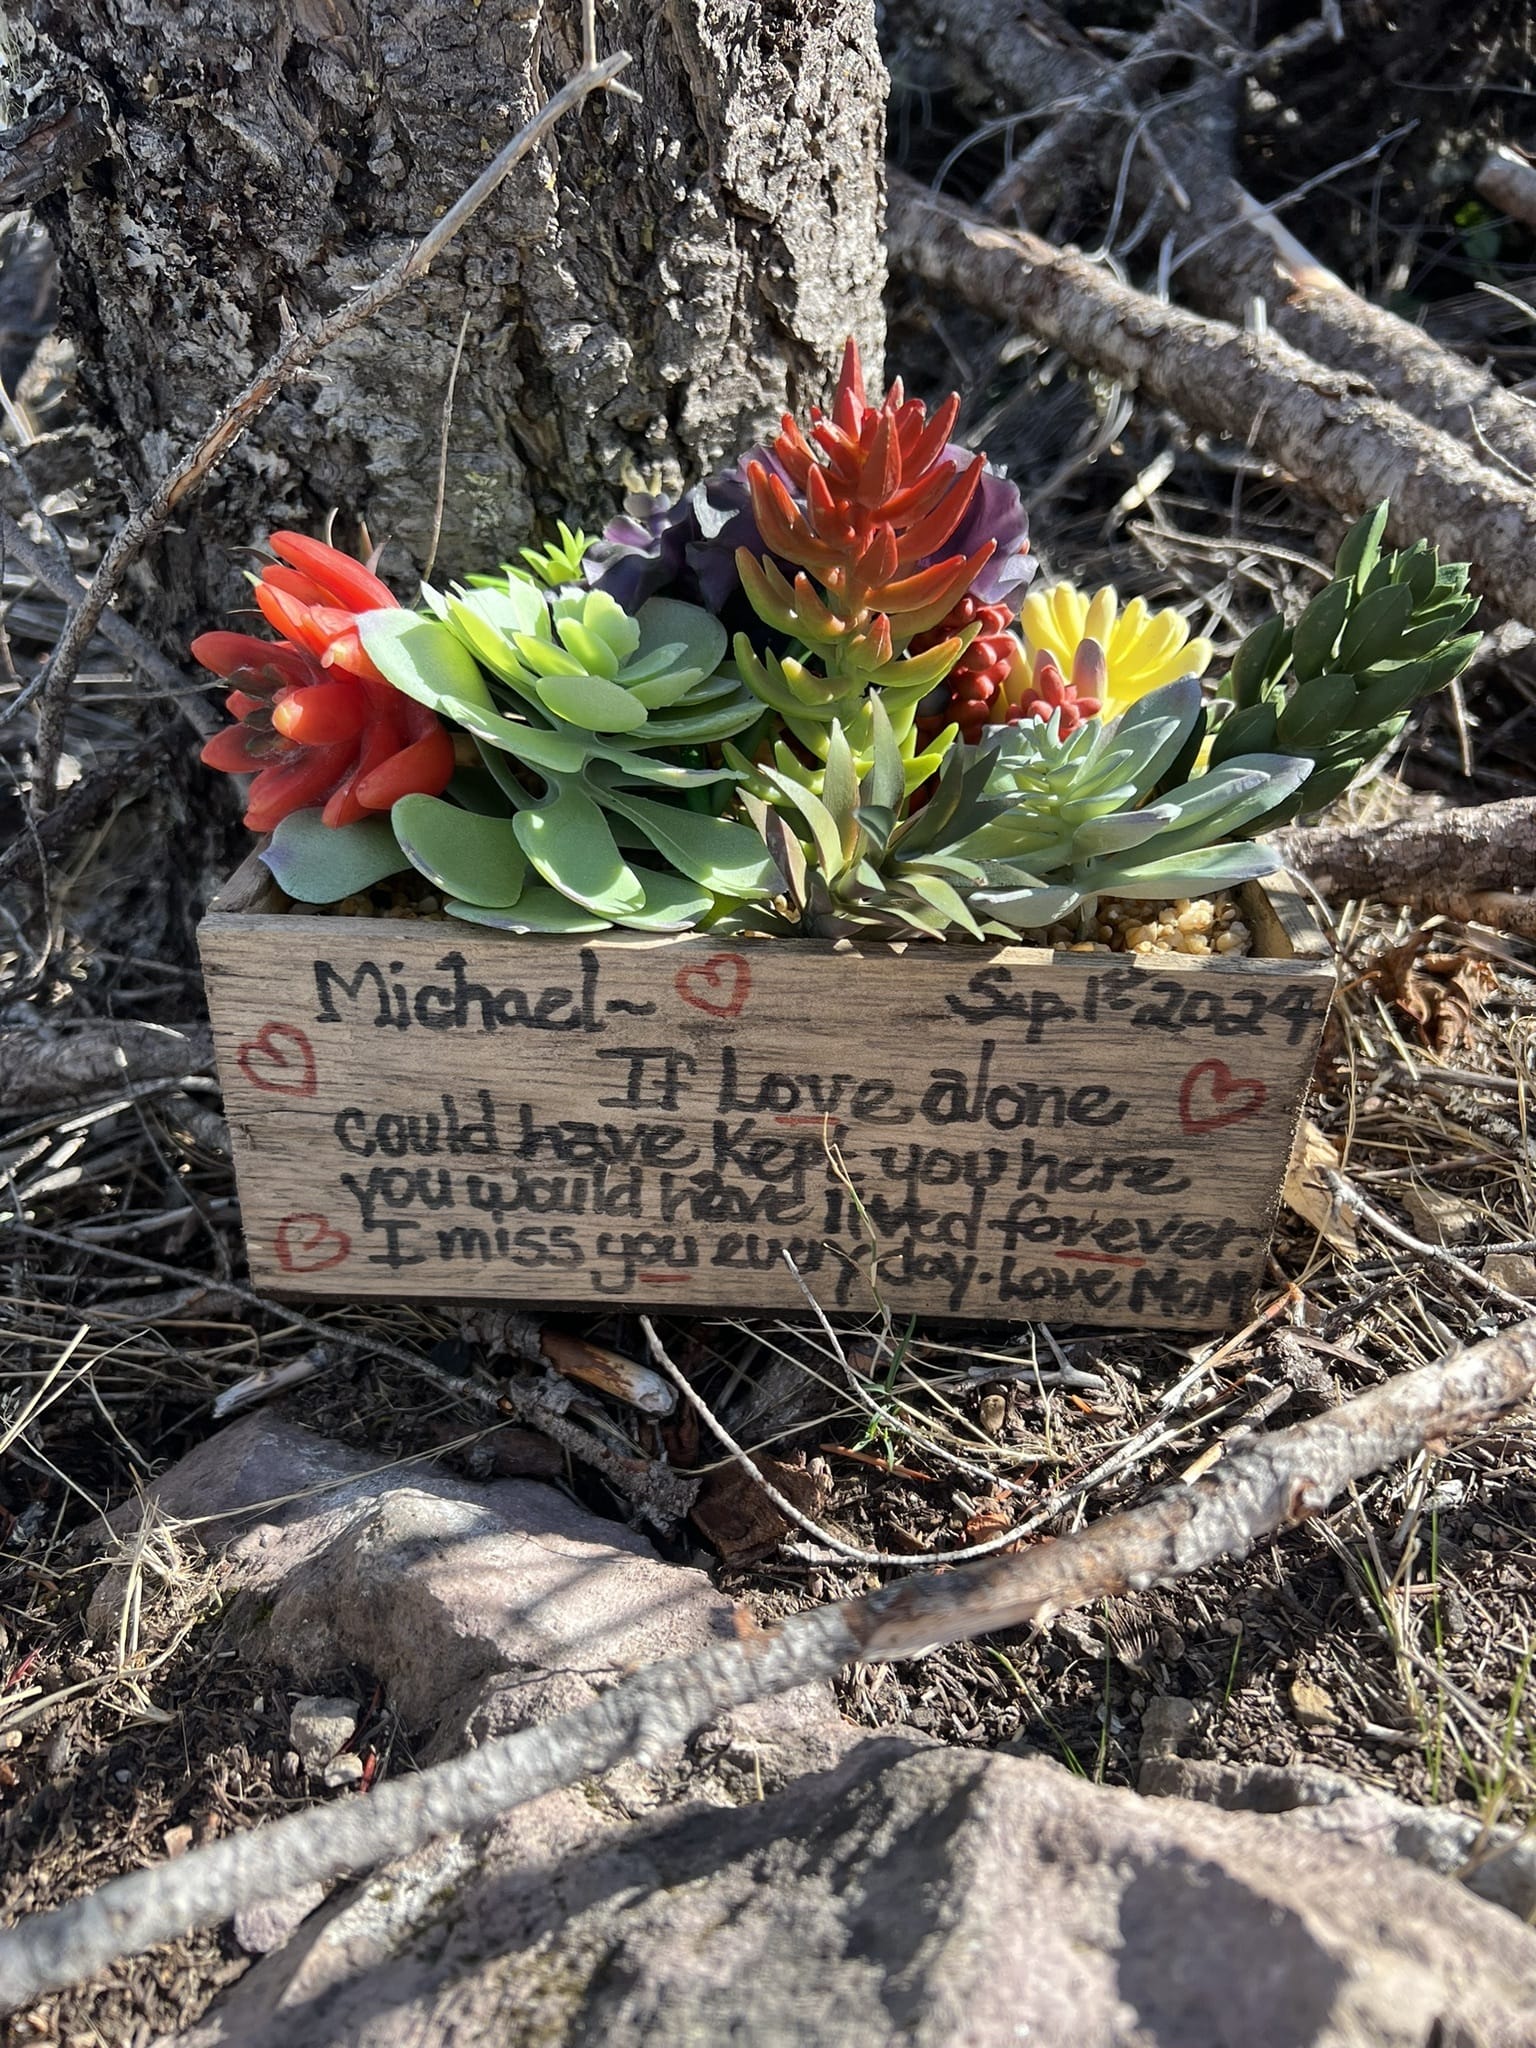 Michael~ Sep. 1st 2024
If Love alone
could have kept you here
you would have lived forever.
I miss you every day. Love MOM